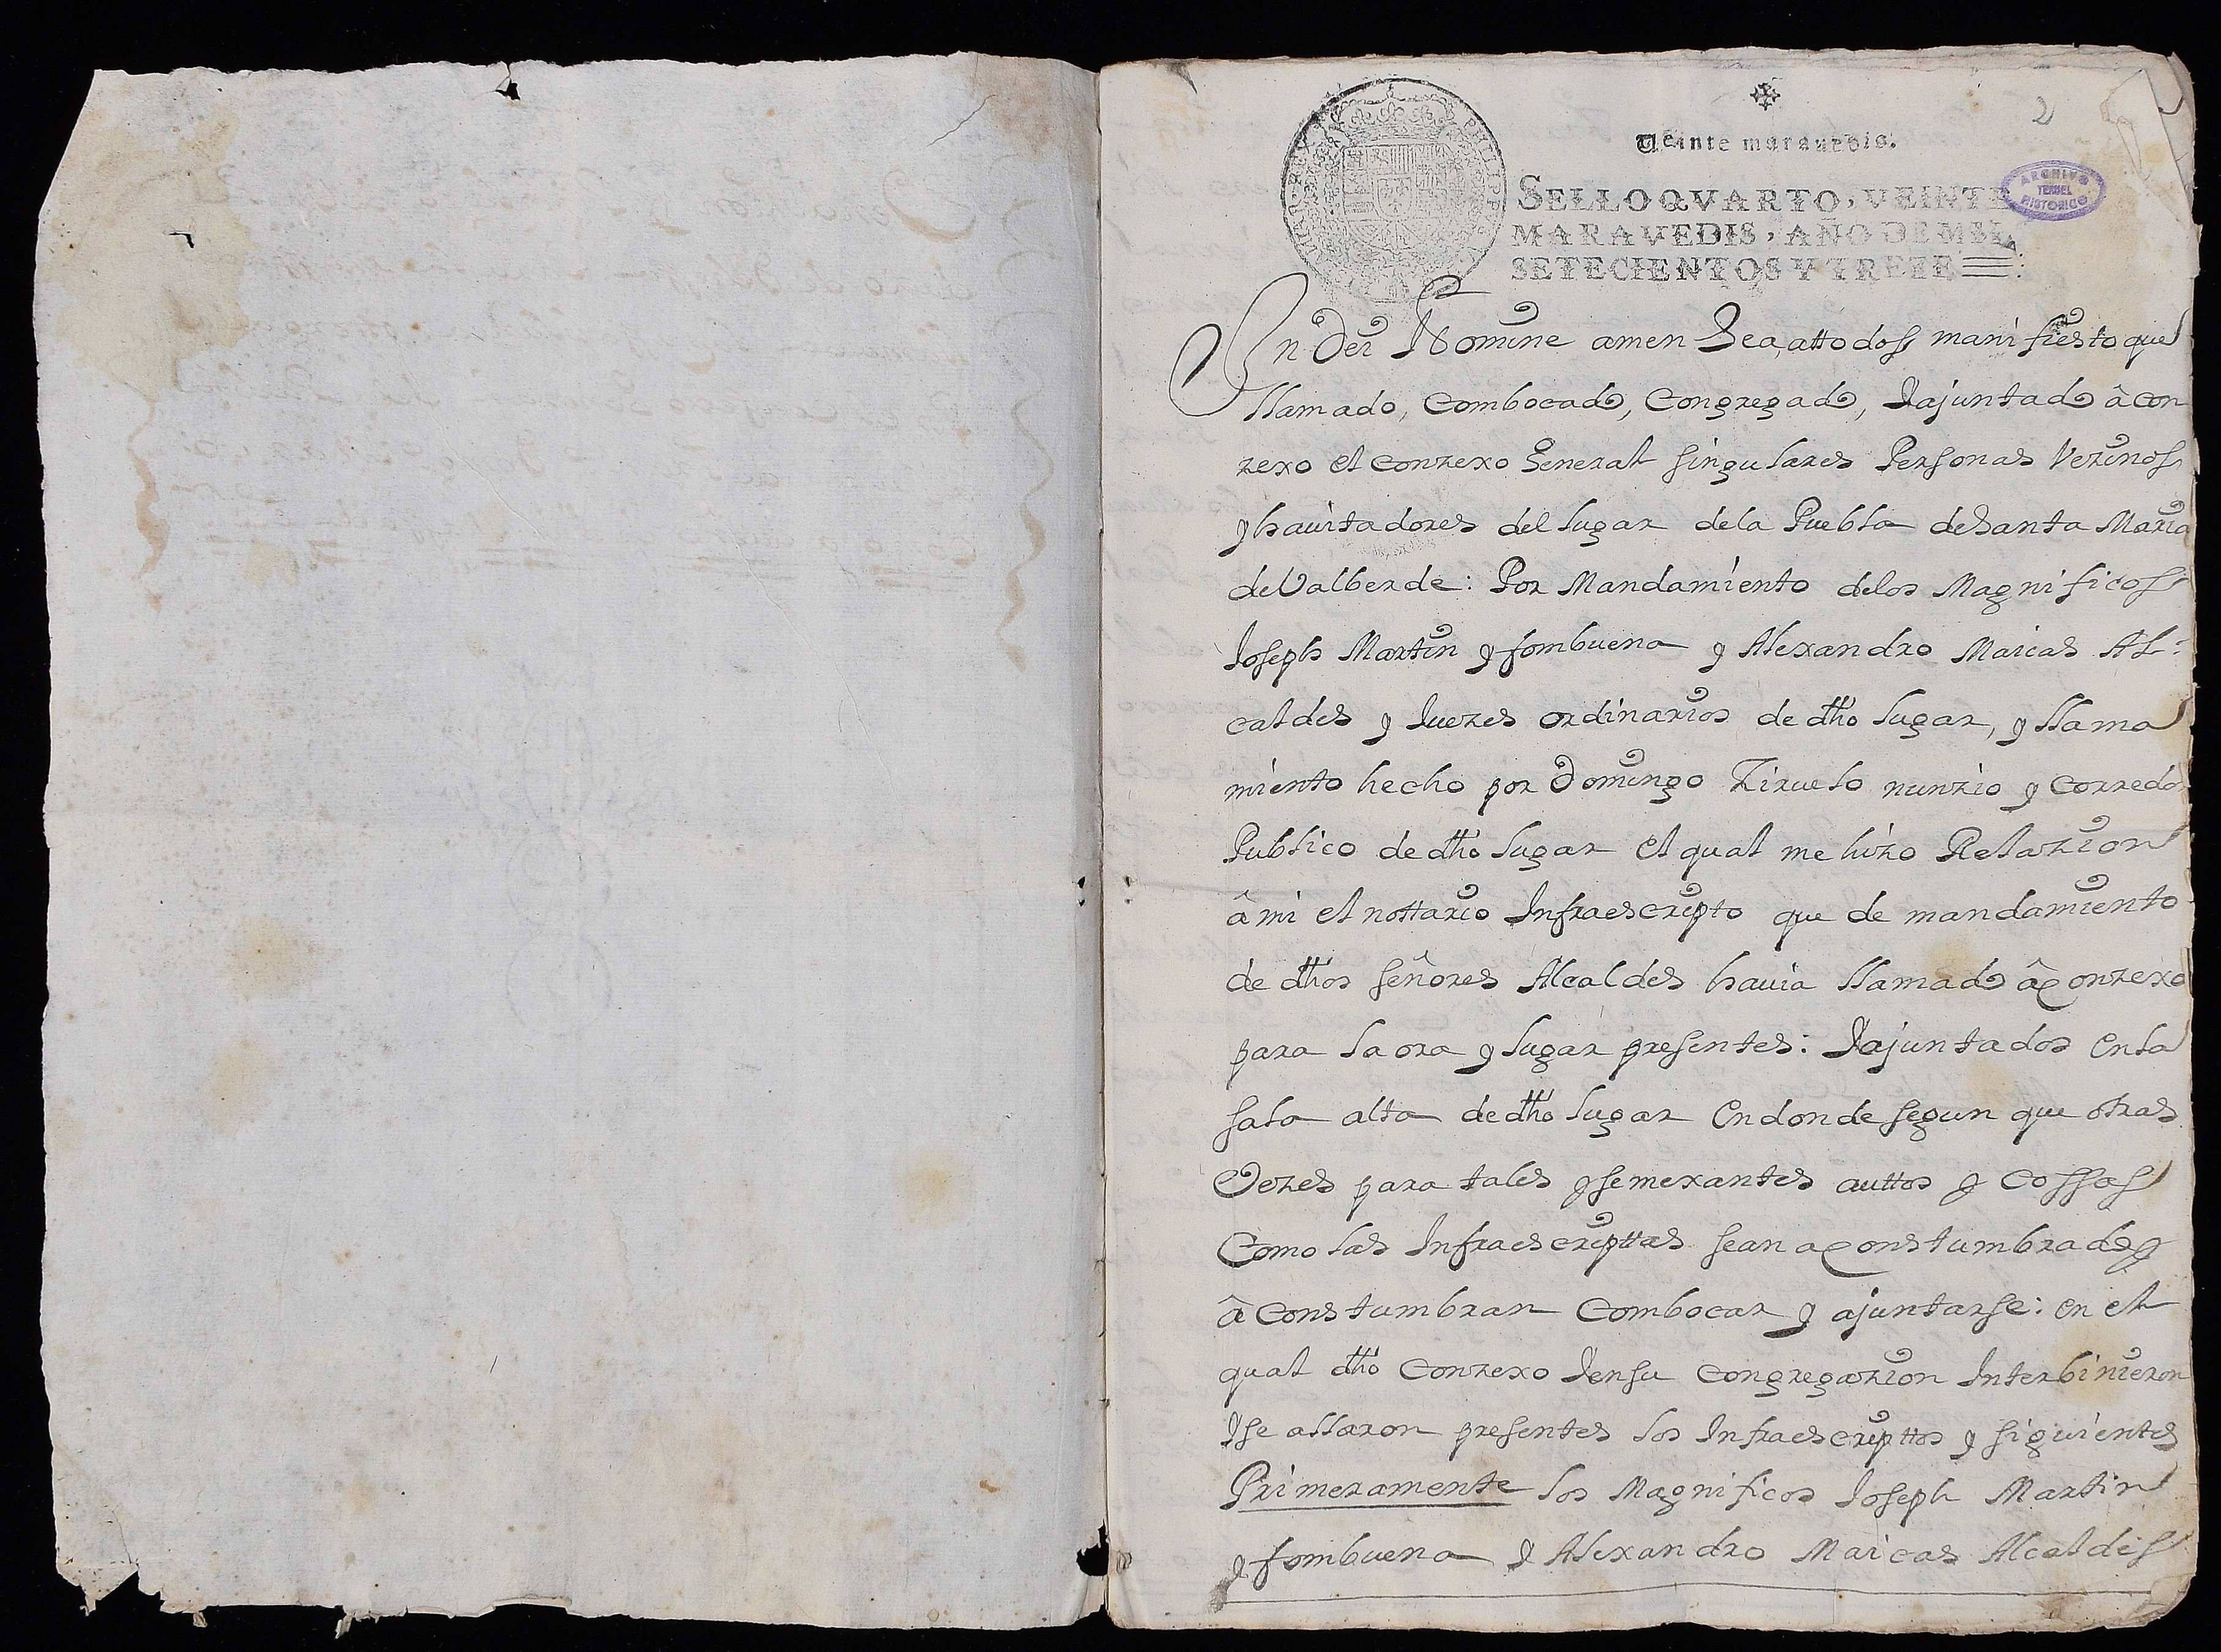 2
Veinte marauedis.
SELLO QVARTO, VEINTE
MARAVEDIS, AÑO DE MIL
SETECIENTOS Y TREZE
ARCHIVO
TERUEL
HISTORICO
PHILIPPVS
In Dei Nomine amen Sea, attodos manifiesto que
llamado, combocado, Congregado, Iajuntado â con
zexo el conzexo General singulares Personas Vezinos
y hauitadores del lugar dela Puebla deSanta Maria
deValberde: Por Mandamiento delos Magnificos
Ioseph Martin y fombuena y Alexandro Maicas Al:
caldes y Iuezes ordinarios de dtho lugar, y llama
miento hecho por Domingo Ziruelo nunzio y Corredor
Publico de dtho lugar el qual me hizo Relazion
â mi el nottario Infraescripto que de mandamiento
de dthos señores Alcaldes hauia llamado â Conzexo
para la ora y lugar presentes: Iajuntados en la
sala alta de dtho lugar en donde segun que otras
Vezes para tales y semexantes auttos y cossas
Como las Infraescripttas sean aConstumbrado y
â Constumbran Combocar y ajuntarse: en el
qual dtho Conzexo Iensu Congregazion Interbinieron
Ise allaron presentes los Infraescripttos y siguientes
Primeramente los Magnificos Ioseph Martin
y fombuena y Alexandro Maicas Alcaldes